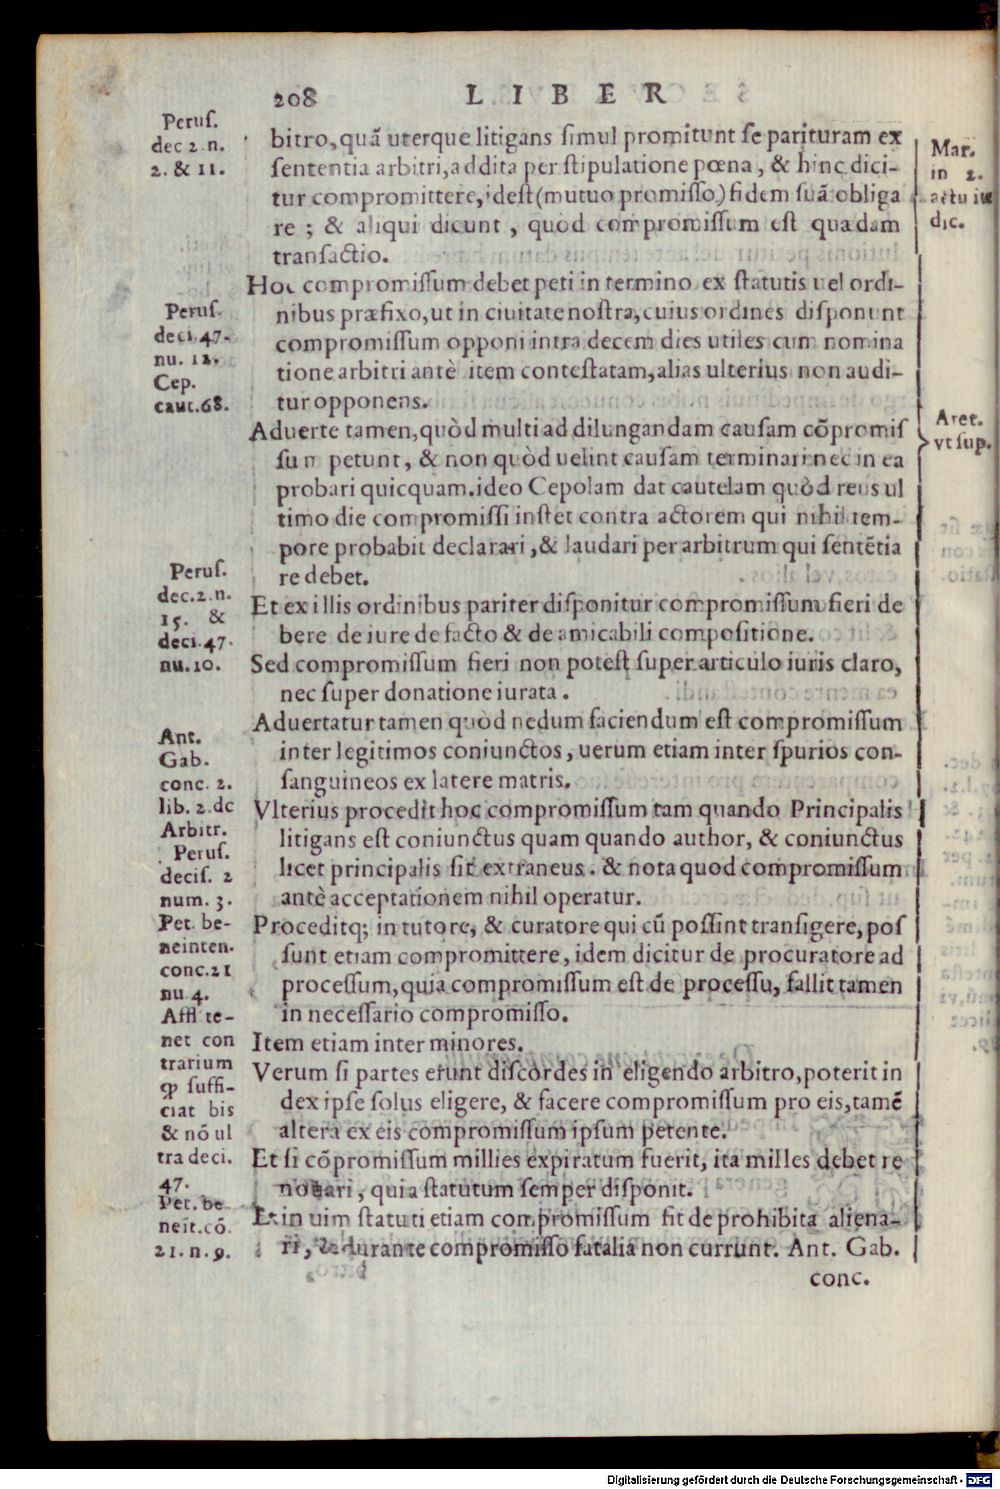 208 LIBER
bitro, quā uterque litigans simul promitunt se parituram ex
sententia arbitri, addita per stipulatione pœna, & hinc dici-
tur compromittere, idest (mutuo promisso) fidem suā obliga
re ; & aliqui dicunt , quòd compromissum est quadam
transactio.
Hoc compromissum debet peti in termino ex statutis uel ordi-
nibus præfixo, ut in ciuitate nostra, cuius ordines disponunt
compromissum opponi intra decem dies utiles cum nomina
tione arbitri antè item contestatam, alias ulterius non audi-
tur opponens.
Aduerte tamen, quòd multi ad dilungandam causam cōpromis
sum petunt, & non quòd uelint causam terminari nec in ea
probari quicquam. ideo Cepolam dat cautelam quòd reus ul
timo die compromissi instet contra actorem qui nihil tem-
pore probabit declarari, & laudari per arbitrum qui sentētia
re debet.
Et ex illis ordinibus pariter disponitur compromissum fieri de
bere de iure de facto & de amicabili compositione.
Sed compromissum fieri non potest super articulo iuris claro,
nec super donatione iurata .
Aduertatur tamen quòd nedum faciendum est compromissum
inter legitimos coniunctos, uerum etiam inter spurios con-
sanguineos ex latere matris.
Vlterius procedit hoc compromissum tam quando Principalis
litigans est coniunctus quam quando author, & coniunctus
licet principalis sit extraneus . & nota quod compromissum
antè acceptationem nihil operatur.
Proceditq; in tutore, & curatore qui cū possint transigere, pos
sunt etiam compromittere, idem dicitur de procuratore ad
processum, quia compromissum est de processu, fallit tamen
in necessario compromisso.
Item etiam inter minores.
Verum si partes erunt discordes in eligendo arbitro, poterit in
dex ipse solus eligere, & facere compromissum pro eis, tamē
altera ex eis compromissum ipsum petente.
Et si cōpromissum millies expiratum fuerit, ita milles debet re
nouari, quia statutum semper disponit.
Et in uim statuti etiam compromissum fit de prohibita aliena-
ri, & durante compromisso fatalia non currunt. Ant. Gab.
conc.
Perus.
dec 2 n.
2. & 11.
Perus.
deci. 47.
nu. 12.
Cep.
caut. 68.
Perus.
dec. 2. n.
15. &
deci. 47.
nu. 10.
Ant.
Gab.
conc. 2.
lib. 2. de
Arbitr.
Perus.
decis. 2
num. 3.
Pet. be-
neinten.
conc. 21
nu 4.
Affl te-
net con
trarium
ꝙ suffi-
ciat bis
& nō ul
tra deci.
47.
Pet. be
neit. cō.
21. n. 9.
Mar.
in 2.
actu iu
dic.
Aret.
vt sup.
Digitalisierung gefördert durch die Deutsche Forschungsgemeinschaft - DFG